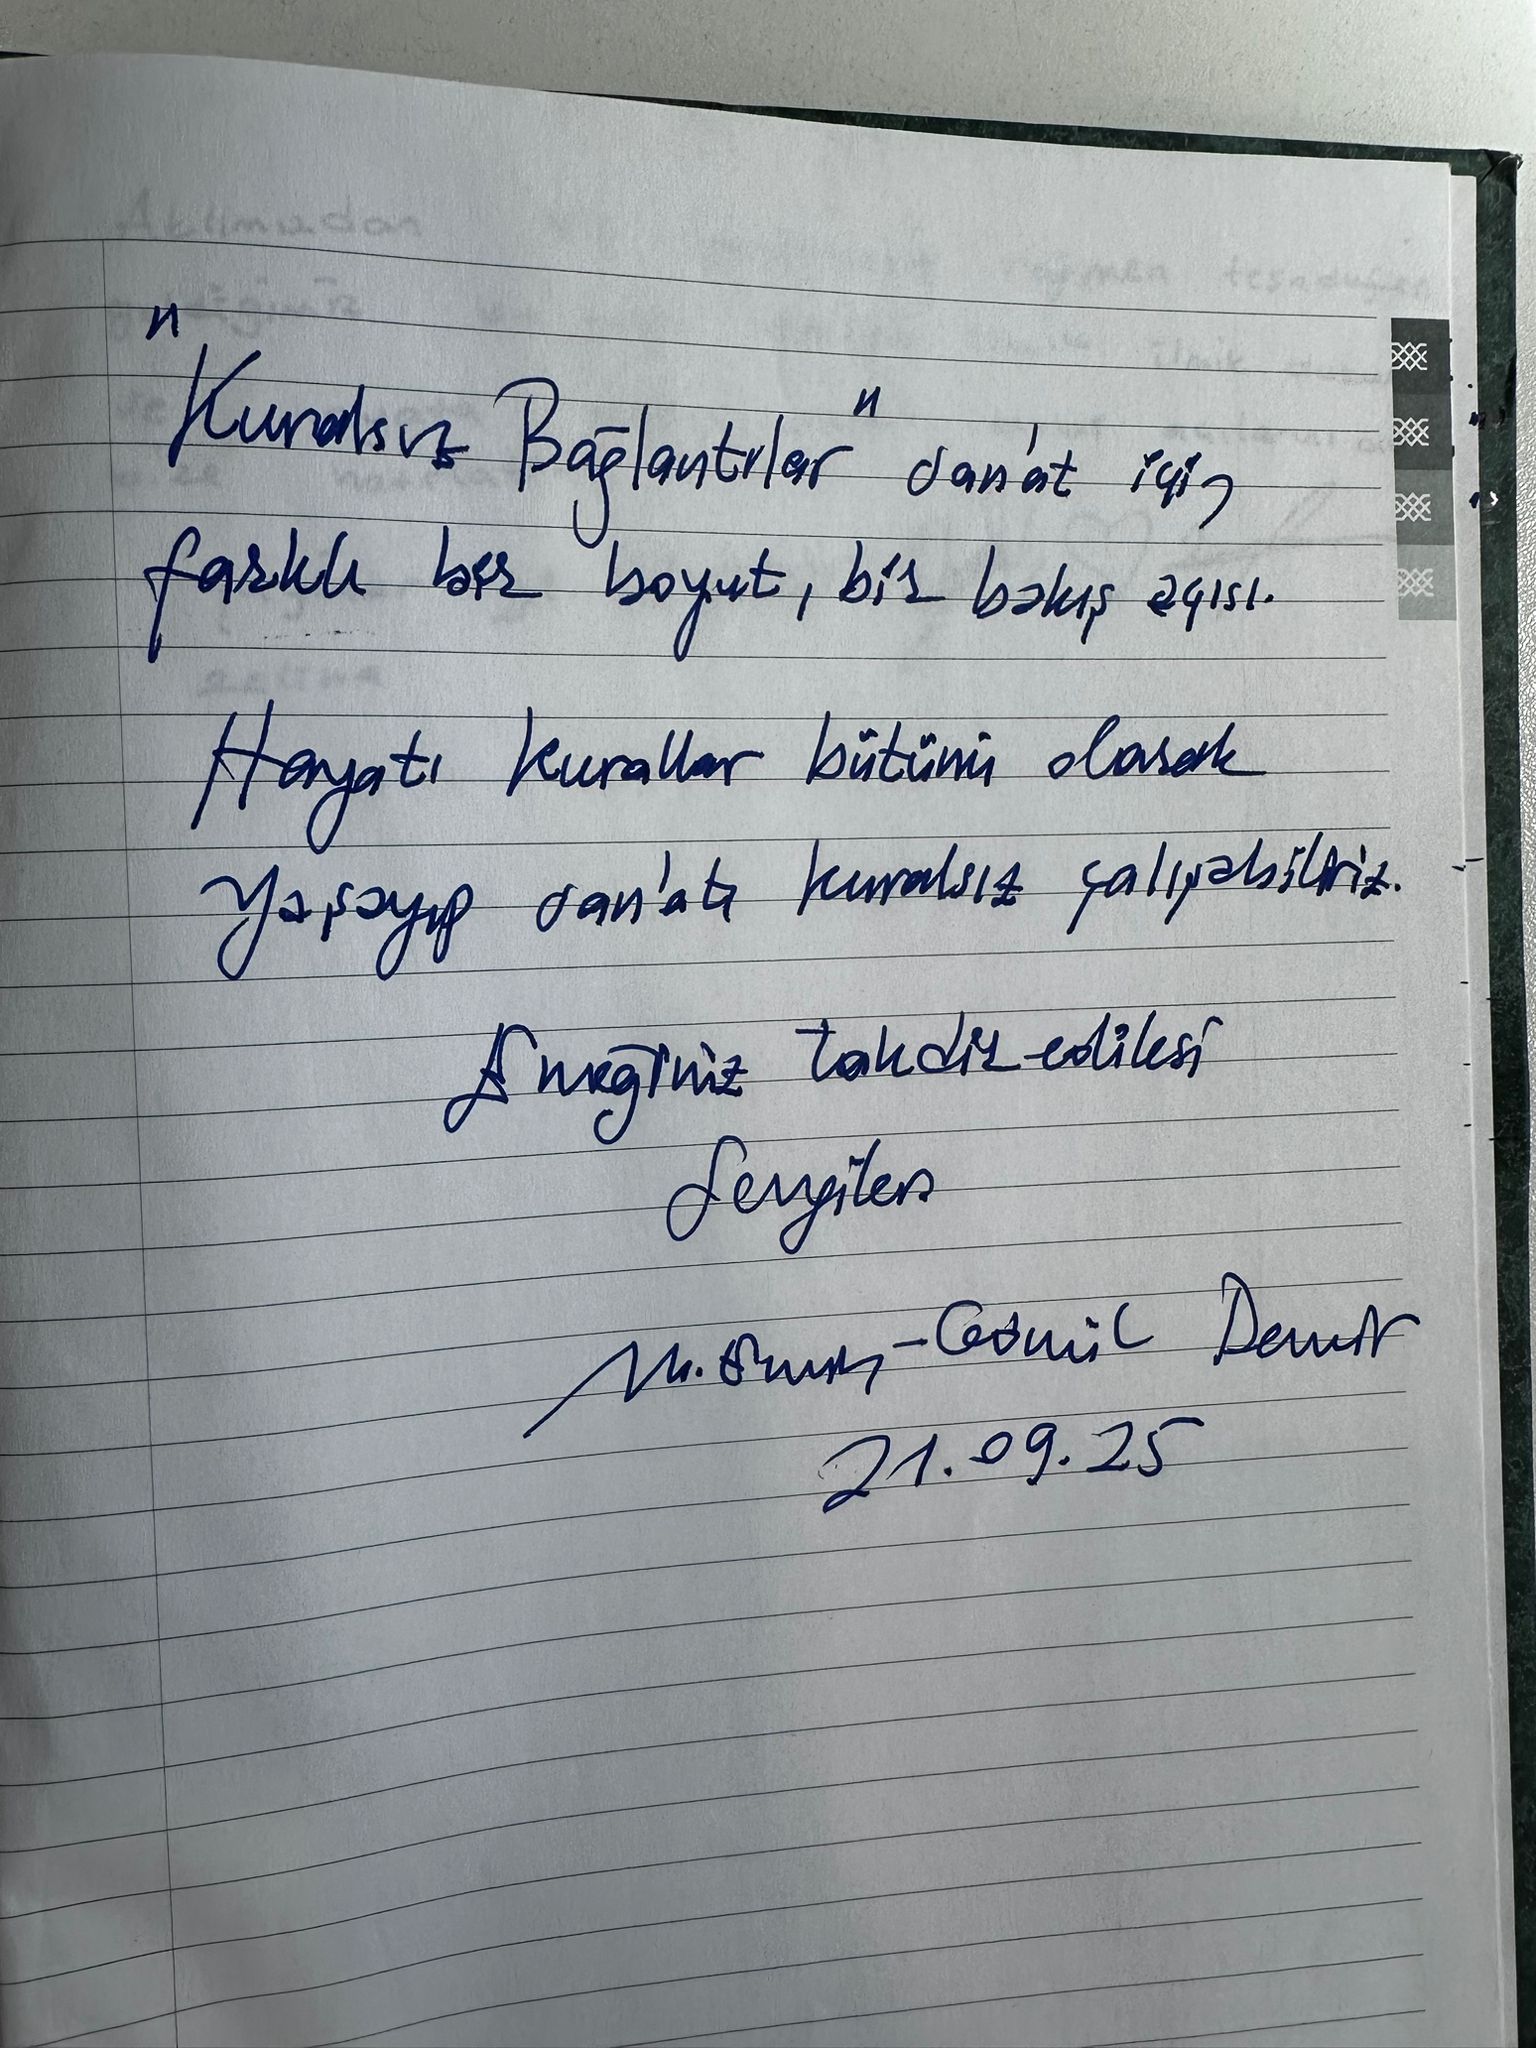 "Kuralsız Bağlantılar" san'at için
farklı bir boyut, bir bakış açısı.
Hayatı kurallar bütünü olarak
yaşayıp san'atı kuralsız çalışabiliriz.
Emeğiniz takdir edilesi
Sevgiler
Demir
21.09.25